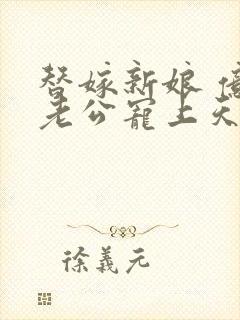 替嫁新娘 億
老公寵上天
徐義元